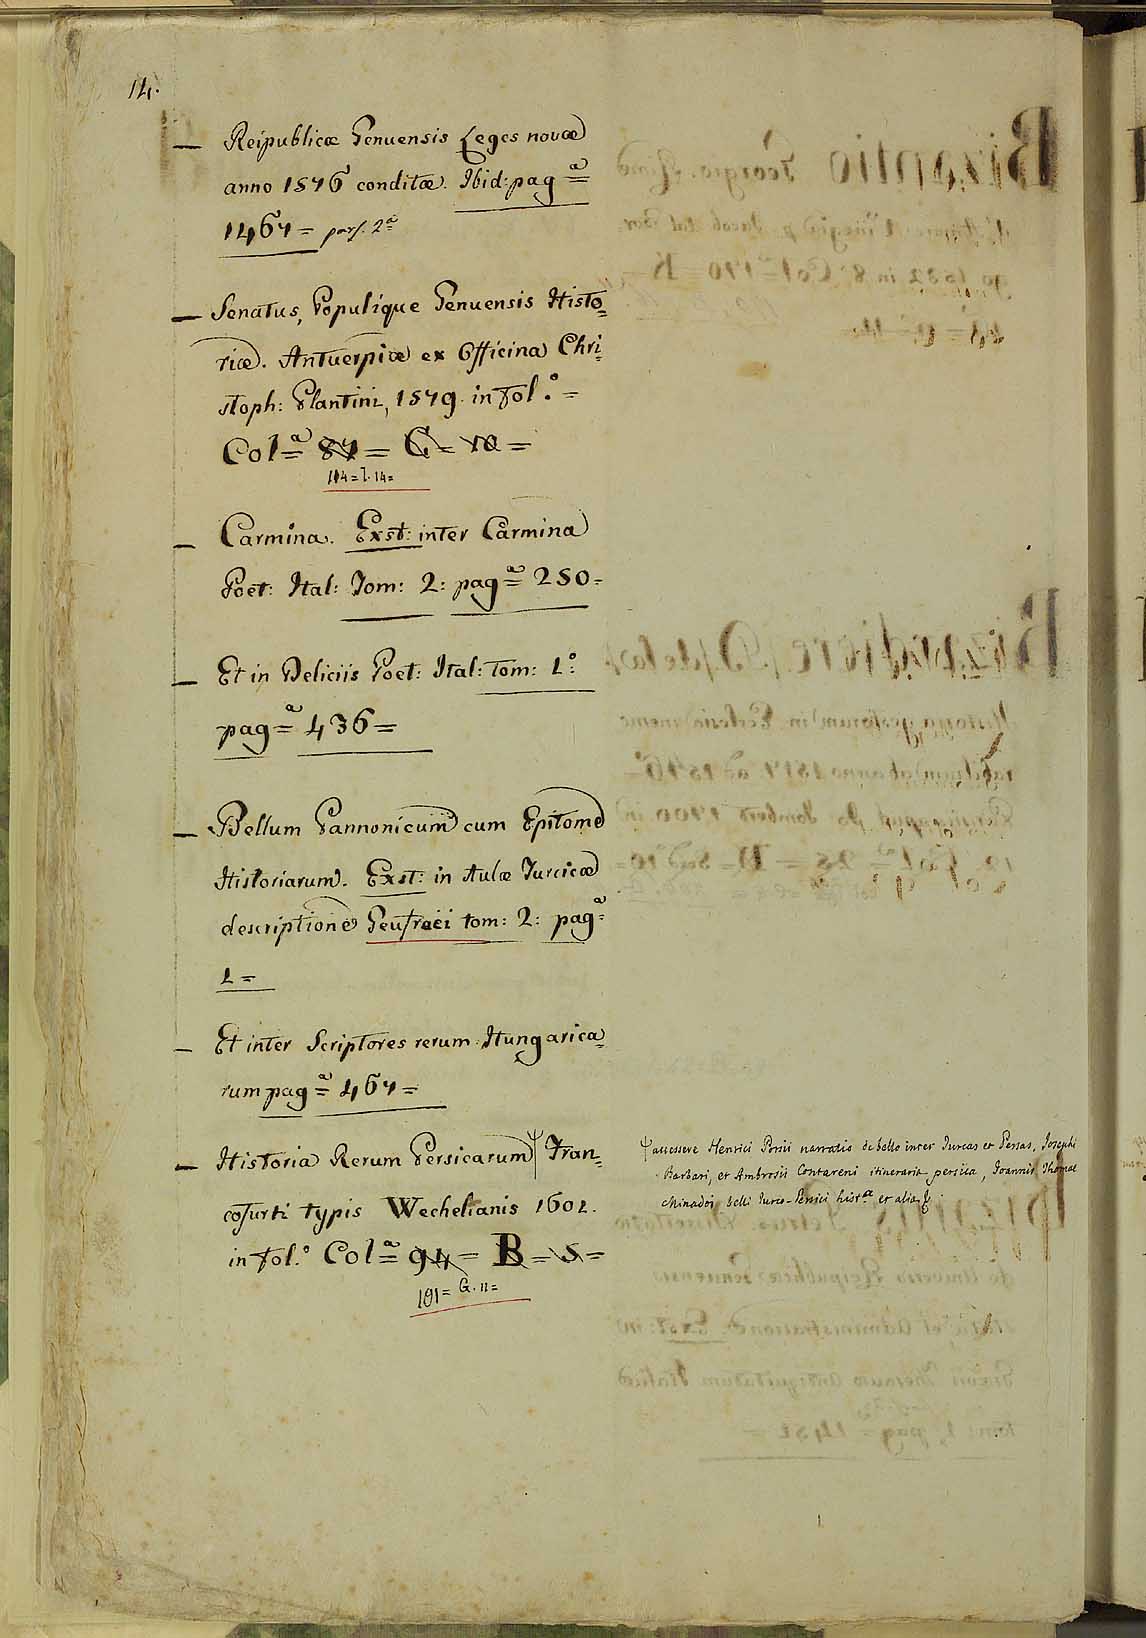 14.
— Reipublicæ Genuensis Leges novæ
anno 1576 conditæ. Ibid: pagª =
1467 = pars. 2ª
— Senatus, Populique Genuensis Histo=
riæ. Antuerpiæ ex Officina Chri=
stoph: Plantini, 1579. in fol.° =
Colª = 87 = C = 10 =
104 = I. 14 =
— Carmina. Exst: inter Carmina
Poet: Ital: Tom: 2: pagª = 250 =
— Et in Deliciis Poet: Ital: tom: 1.°
pagª = 436 =
— Bellum Pannonicum cum Epitome
Historiarum. Exst: in Aulæ Turcicæ
descriptione Geufræi tom: 2: pagª =
1 =
— Et inter Scriptores rerum Hungarica=
rum pagª = 467 =
— Historia Rerum Persicarum Ψ Fran=
cofurti typis Wechelianis 1601.
in fol.° Colª = 94 = B = 5 =
101 = G. 11 =
Ψ accessere Henrici Porsii narratio de bello inter Turcas et Persas, Josephi
Barbari, et Ambrosii Contareni itineraria persica, Joannis Thomæ
Minadoi belli Turco-Persici histª. et alia